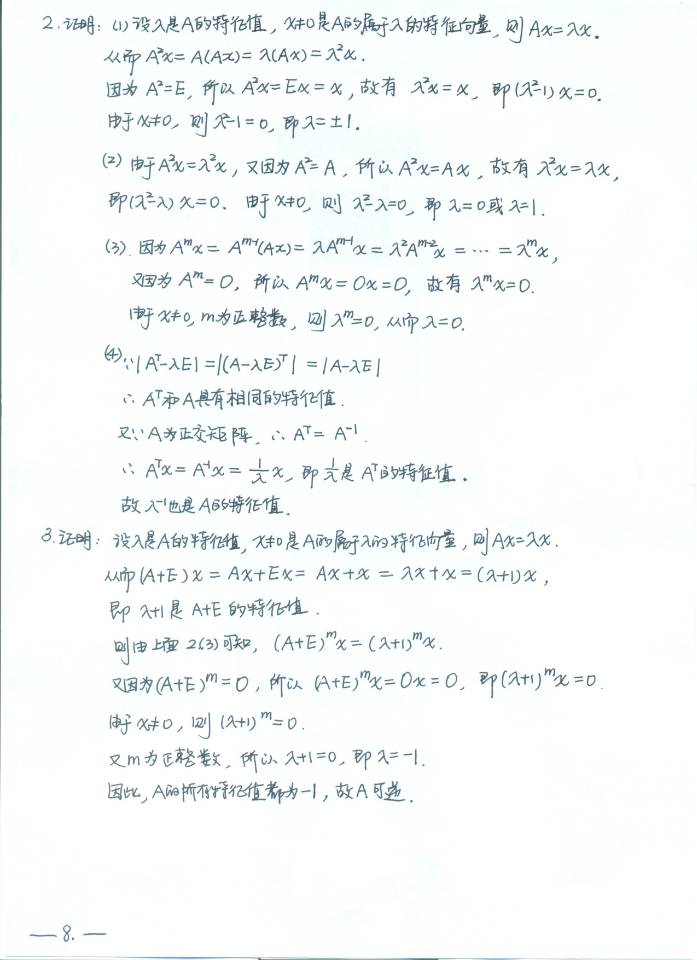 2.证明: (1)设λ是A的特征值, x≠0是A的属于λ的特征向量, 则Ax=λx.
从而A²x=A(Ax)=λ(Ax)=λ²x.
因为A²=E, 所以A²x=Ex=x, 故有 λ²x=x, 即(λ²-1)x=0.
由于x≠0, 则λ²-1=0, 即λ=±1.
(2) 由于A²x=λ²x, 又因为A²=A, 所以A²x=Ax, 故有λ²x=λx,
即(λ²-λ)x=0. 由于x≠0, 则 λ²-λ=0, 即λ=0或λ=1.
(3). 因为Aᵐx=Aᵐ⁻¹(Ax)=λAᵐ⁻¹x=λ²Aᵐ⁻²x=⋯=λᵐx,
又因为Aᵐ=O, 所以Aᵐx=Ox=0, 故有λᵐx=0.
由于x≠0, m为正整数, 则λᵐ=0, 从而λ=0.
(4)∵|Aᵀ-λE|=|(A-λE)ᵀ|=|A-λE|
∴Aᵀ和A具有相同的特征值.
又∵A为正交矩阵, ∴Aᵀ=A⁻¹.
∴Aᵀx=A⁻¹x=1/λ x, 即1/λ是Aᵀ的特征值.
故λ⁻¹也是A的特征值.
3.证明: 设λ是A的特征值, x≠0是A的属于λ的特征向量, 则Ax=λx.
从而(A+E)x=Ax+Ex=Ax+x=λx+x=(λ+1)x,
即 λ+1是A+E的特征值.
则由上面2(3)可知, (A+E)ᵐx=(λ+1)ᵐx.
又因为(A+E)ᵐ=0, 所以(A+E)ᵐx=Ox=0, 即(λ+1)ᵐx=0.
由于x≠0, 则(λ+1)ᵐ=0.
又m为正整数, 所以λ+1=0, 即λ=-1.
因此, A的所有特征值都为-1, 故A可逆.
—8.—